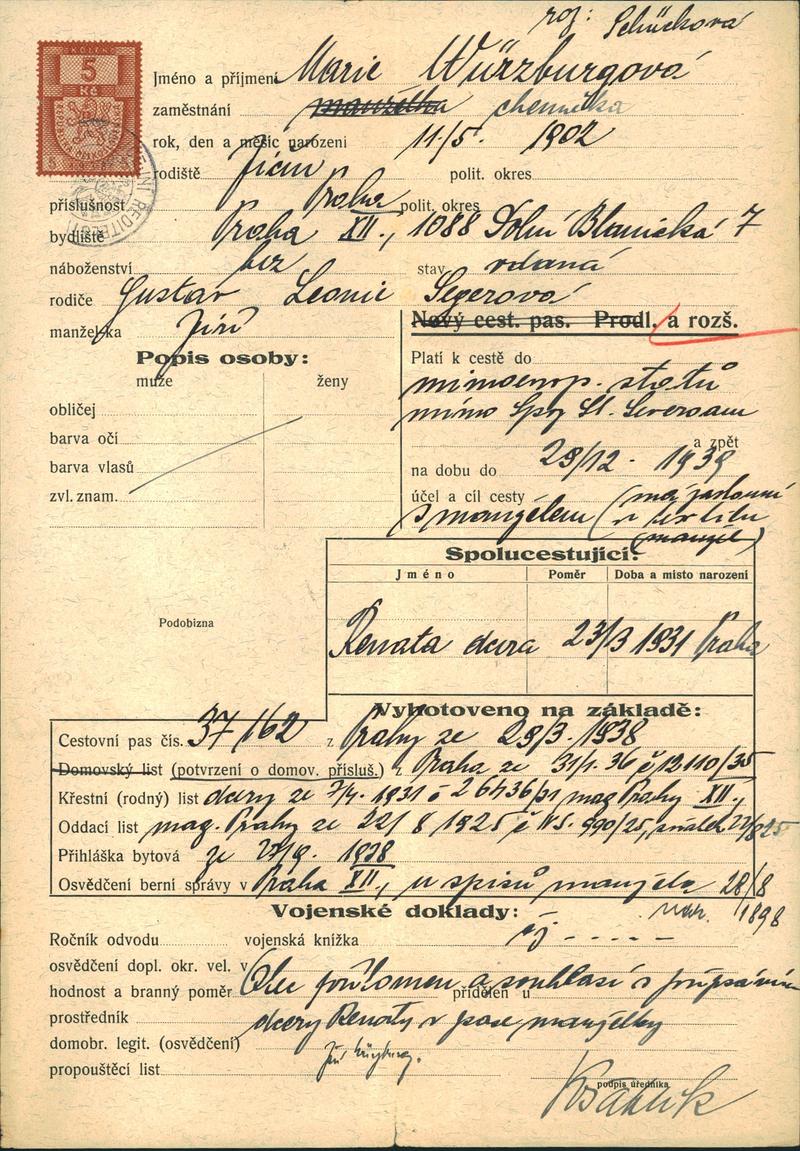 roz: Schücková
KOLEK
5
Kč
Jméno a příjmení Marie Würzburgová
zaměstnání manželka chemička
rok, den a měsíc narození 11/5. 1902
rodiště Jičín polit. okres
příslušnost Praha polit. okres
bydliště Praha XII., 1088 Dolní Blanická 7
náboženství bez stav vdaná
rodiče Gustav Leonie Segerová
manžel-ka Jiří
Nový cest. pas. Prodl. a rozš.
Popis osoby:
muže ženy
obličej
barva očí
barva vlasů
zvl. znam.
Platí k cestě do
mimoevrop. států
mimo
a zpět
na dobu do 29/12 - 1939
účel a cíl cesty
s manželem (
manžel)
Spolucestující:
Jméno Poměr Doba a místo narození
Renata dcera 23/3 1931 Praha
Podobizna
Vyhotoveno na základě:
Cestovní pas čís. 37/162 z Prahy ze 29/3. 1938
Domovský list (potvrzení o domov. přísluš.) z Praha ze 31/1. 36 č 13110/35
Křestní (rodný) list dcery ze 7/4. 1931 č 26436/31 mag Prahy XII.,
Oddací list mag. Prahy ze 22/8 1925 č 990/25, sňatek 22/8 25
Přihláška bytová ze 27/9. 1938
Osvědčení berní správy v Praha XII., u spisů manžela 28/8
nar. 1898
Vojenské doklady:
Ročník odvodu vojenská knížka
osvědčení dopl. okr. vel. v
hodnost a branný poměr přidělen u
Otec přítomen a souhlasí s připsáním
prostředník dcery Renaty v pase manželky
domobr. legit. (osvědčení)
Jiří Würzburg.
propouštěcí list
podpis úředníka